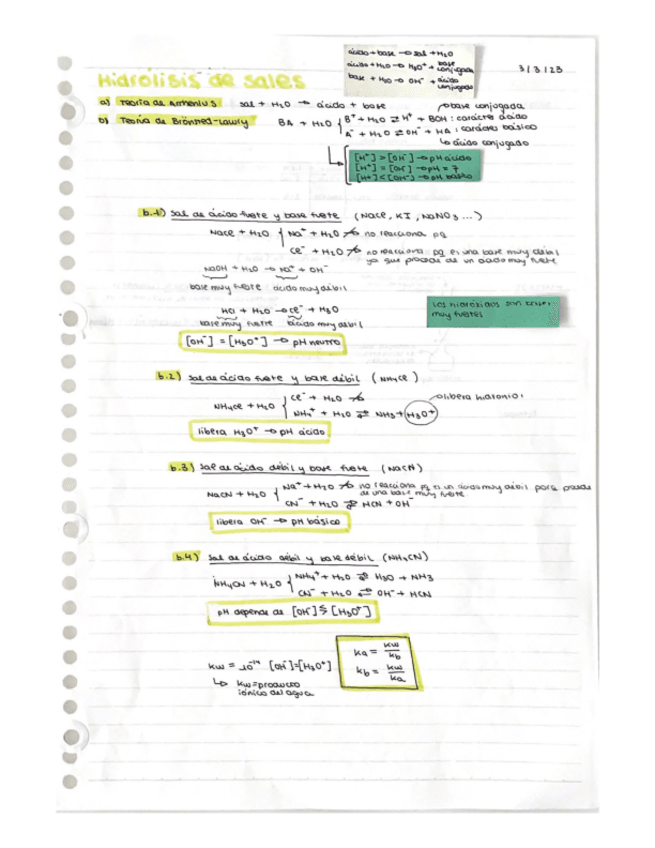 ácido + base → sal + H2O
ácido + H2O → H3O+ + base conjugada
base + H2O → OH- + ácido conjugado
3/3/23
Hidrólisis de sales
a) Teoría de Arrhenius sal + H2O → ácido + base
b) Teoría de Brönsted-Lawry BA + H2O { B+ + H2O ⇄ H+ + BOH : carácter ácido
base conjugada
A- + H2O ⇄ OH- + HA : carácter básico
↳ ácido conjugado
[H+] > [OH-] → pH ácido
[H+] = [OH-] → pH = 7
[H+] < [OH-] → pH básico
b.1) Sal de ácido fuerte y base fuerte (NaCl, KI, NaNO3...)
NaCl + H2O { Na+ + H2O ↛ no reacciona pq
Cl- + H2O ↛ no reacciona pq es una base muy débil
ya que procede de un ácido muy fuerte
NaOH + H2O → Na+ + OH-
base muy fuerte ácido muy débil
HCl + H2O → Cl- + H3O
base muy fuerte ácido muy débil
Los hidróxidos son bases
muy fuertes
[OH-] = [H3O+] → pH neutro
b.2) Sal de ácido fuerte y base débil (NH4Cl)
NH4Cl + H2O { Cl- + H2O ↛
→ libera hidronio
NH4+ + H2O ⇄ NH3 + H3O+
libera H3O+ → pH ácido
b.3) Sal de ácido débil y base fuerte (NaCN)
NaCN + H2O { Na+ + H2O ↛ no reacciona pq es un ácido muy débil porq procede
de una base muy fuerte
CN- + H2O ⇄ HCN + OH-
libera OH- → pH básico
b.4) Sal de ácido débil y base débil (NH4CN)
NH4CN + H2O { NH4+ + H2O ⇄ H3O + NH3
CN- + H2O ⇄ OH- + HCN
pH depende de [OH-] ≶ [H3O+]
Kw = 10-14 [OH-]=[H3O+]
↳ Kw = producto
iónico del agua
Ka = Kw/Kb
Kb = Kw/Ka